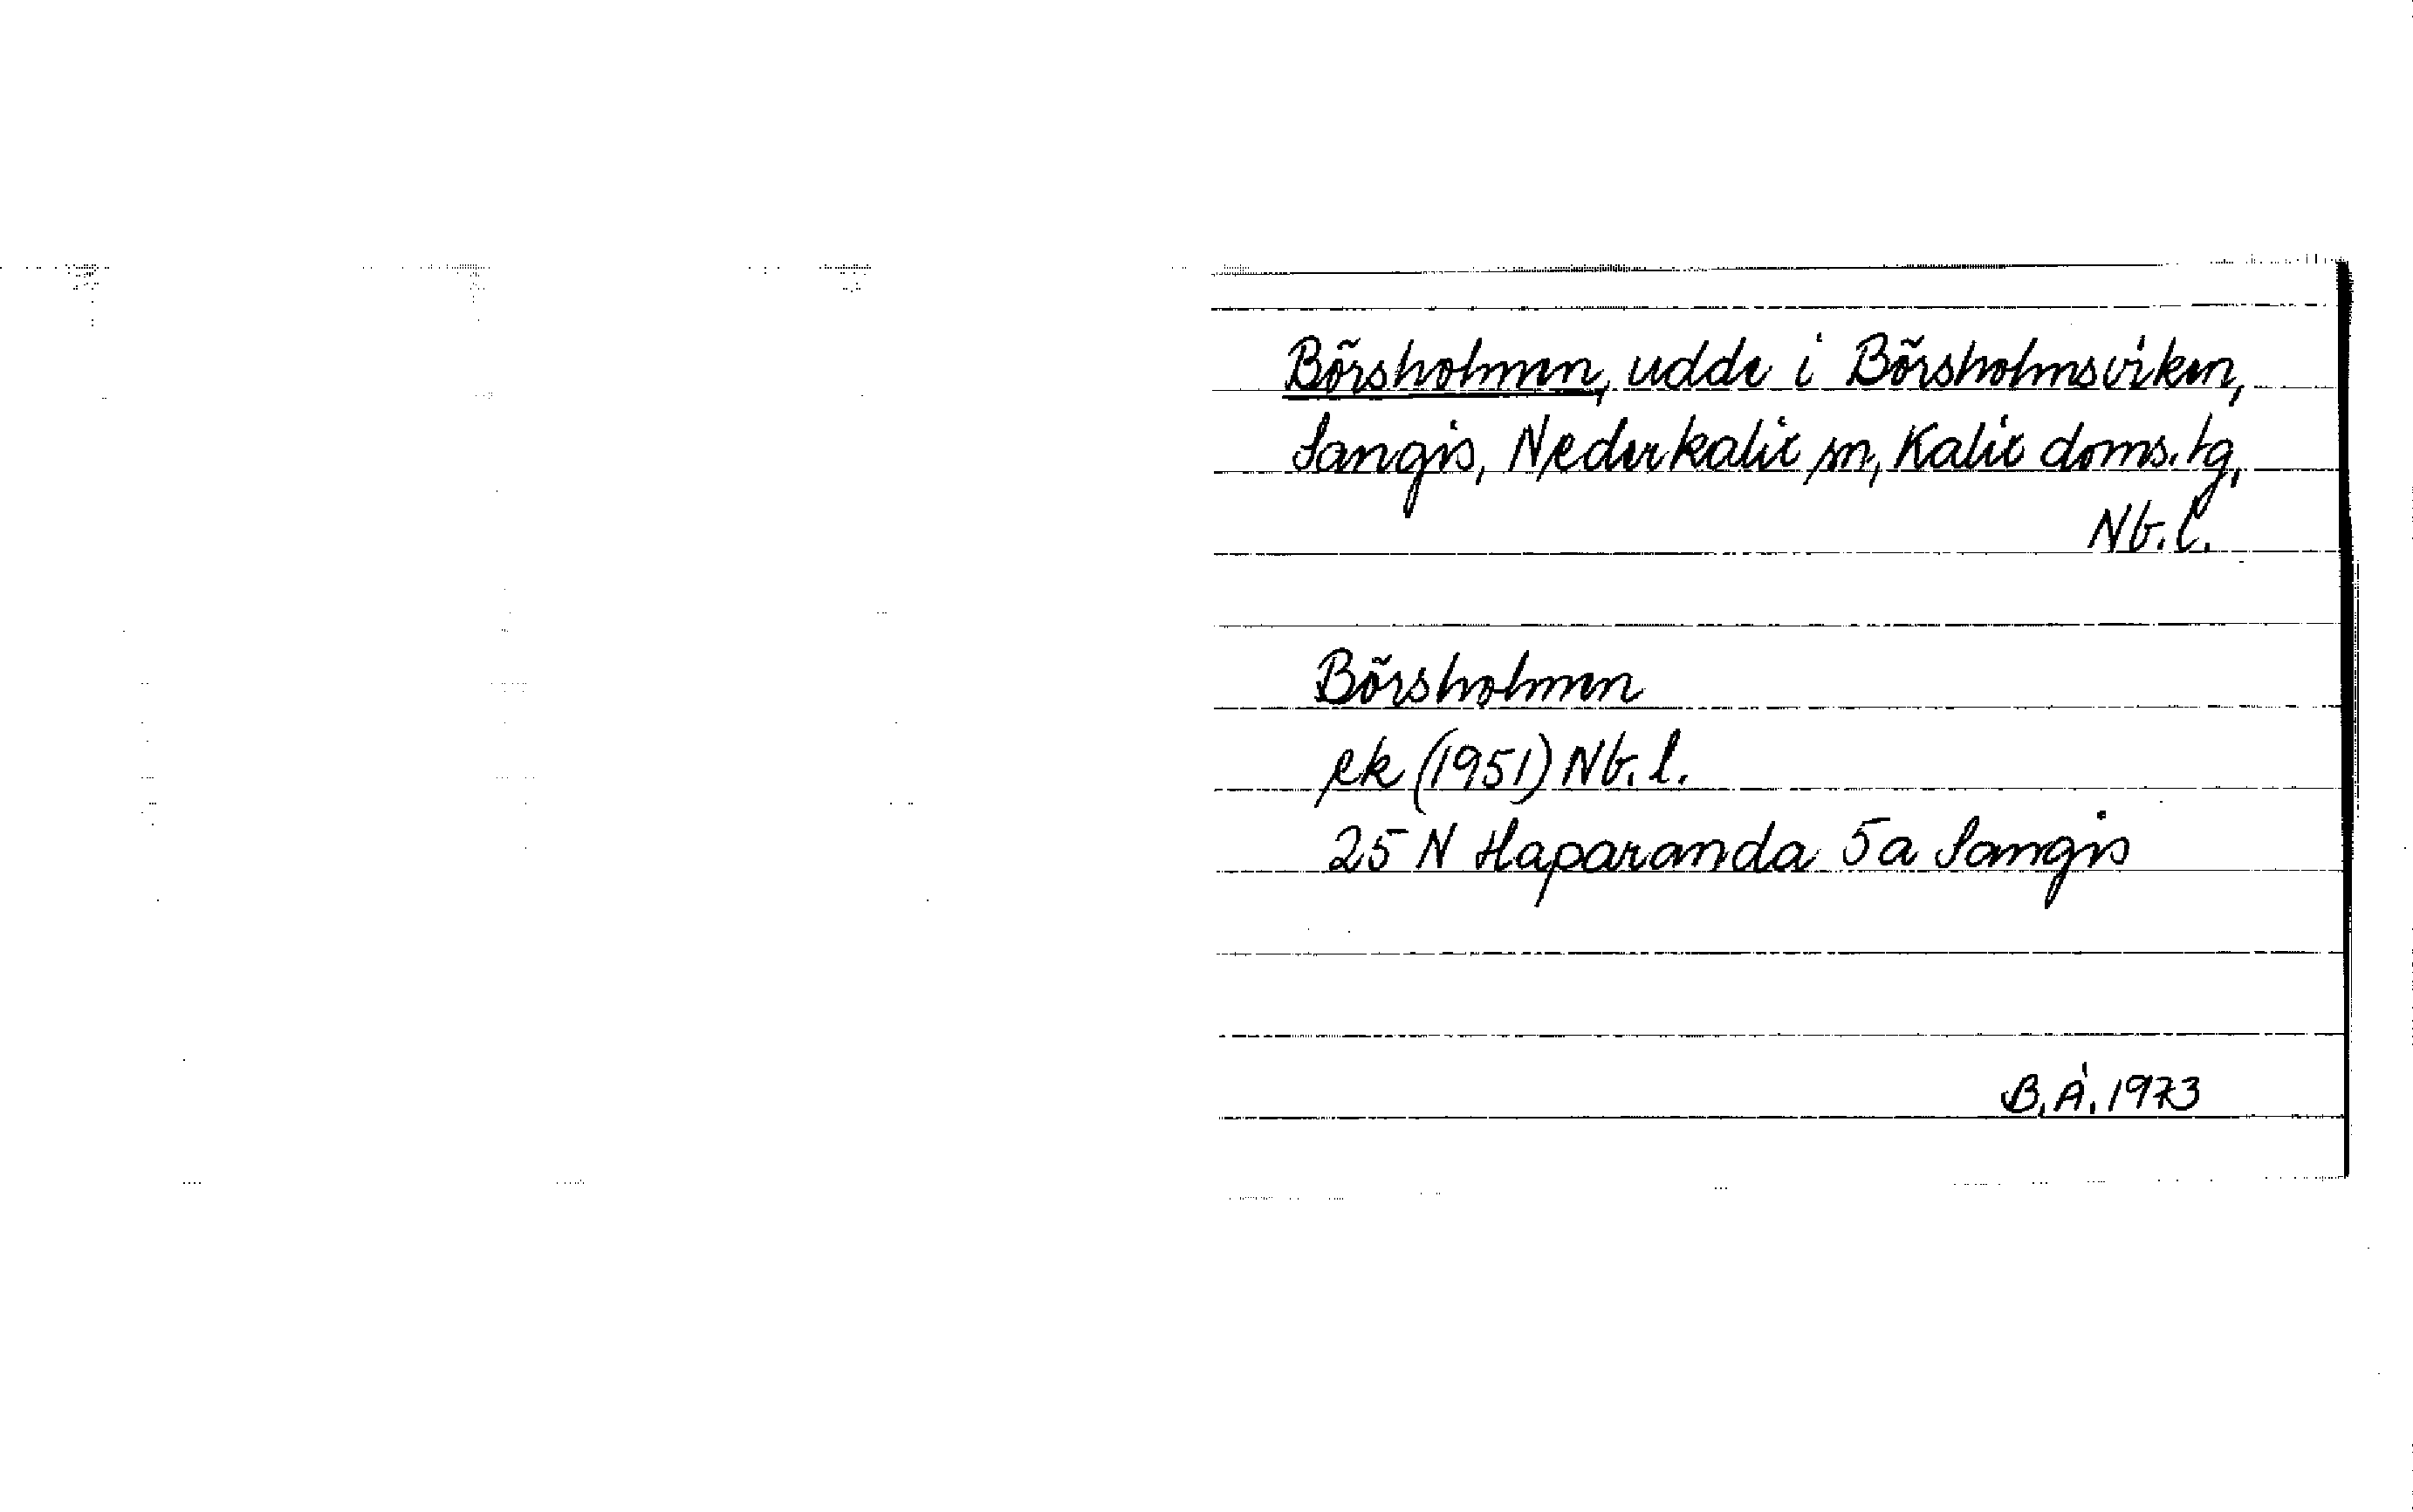 Börsholmen, udde i Börsholmsviken,
Sangis, Nederkalix sn, Kalix doms. tg,
Nb. l.
Börsholmen
ek (1951) Nb. l.
25 N Haparanda 5a Sangis
B.Å. 1973